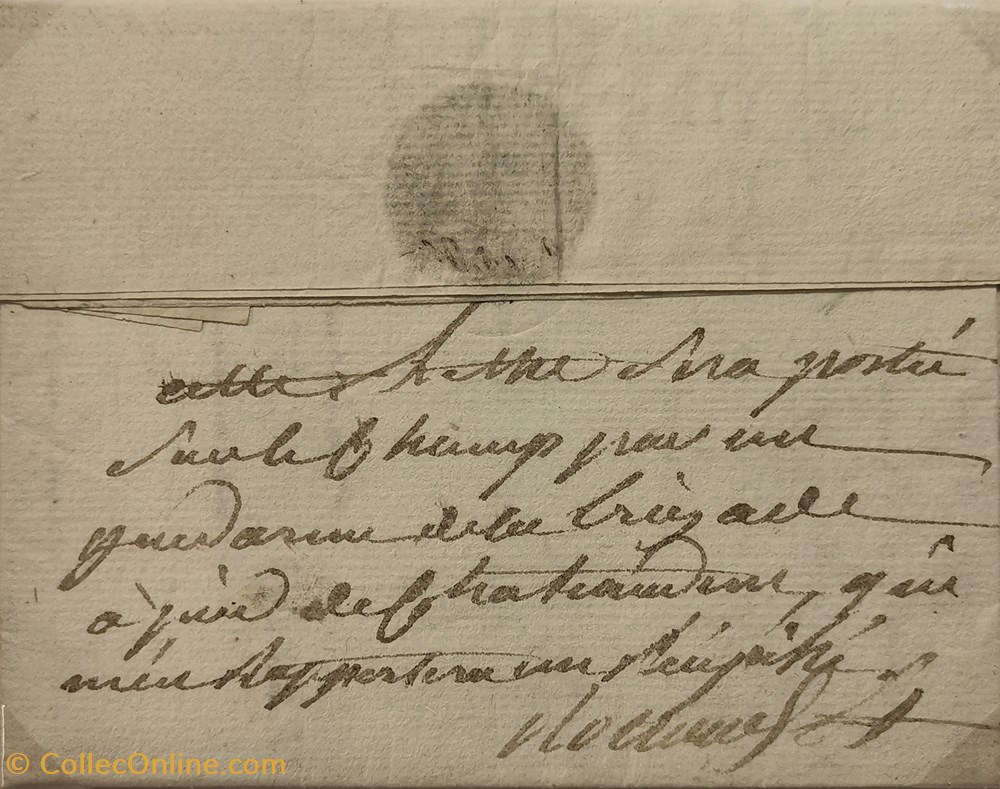 cette Lettre Sera porteé
Sur le Champ par un
gendarme de la brigade
à pied de Chateaudun, qui
m'en Rapportera un Récépissé
© CollecOnline.com